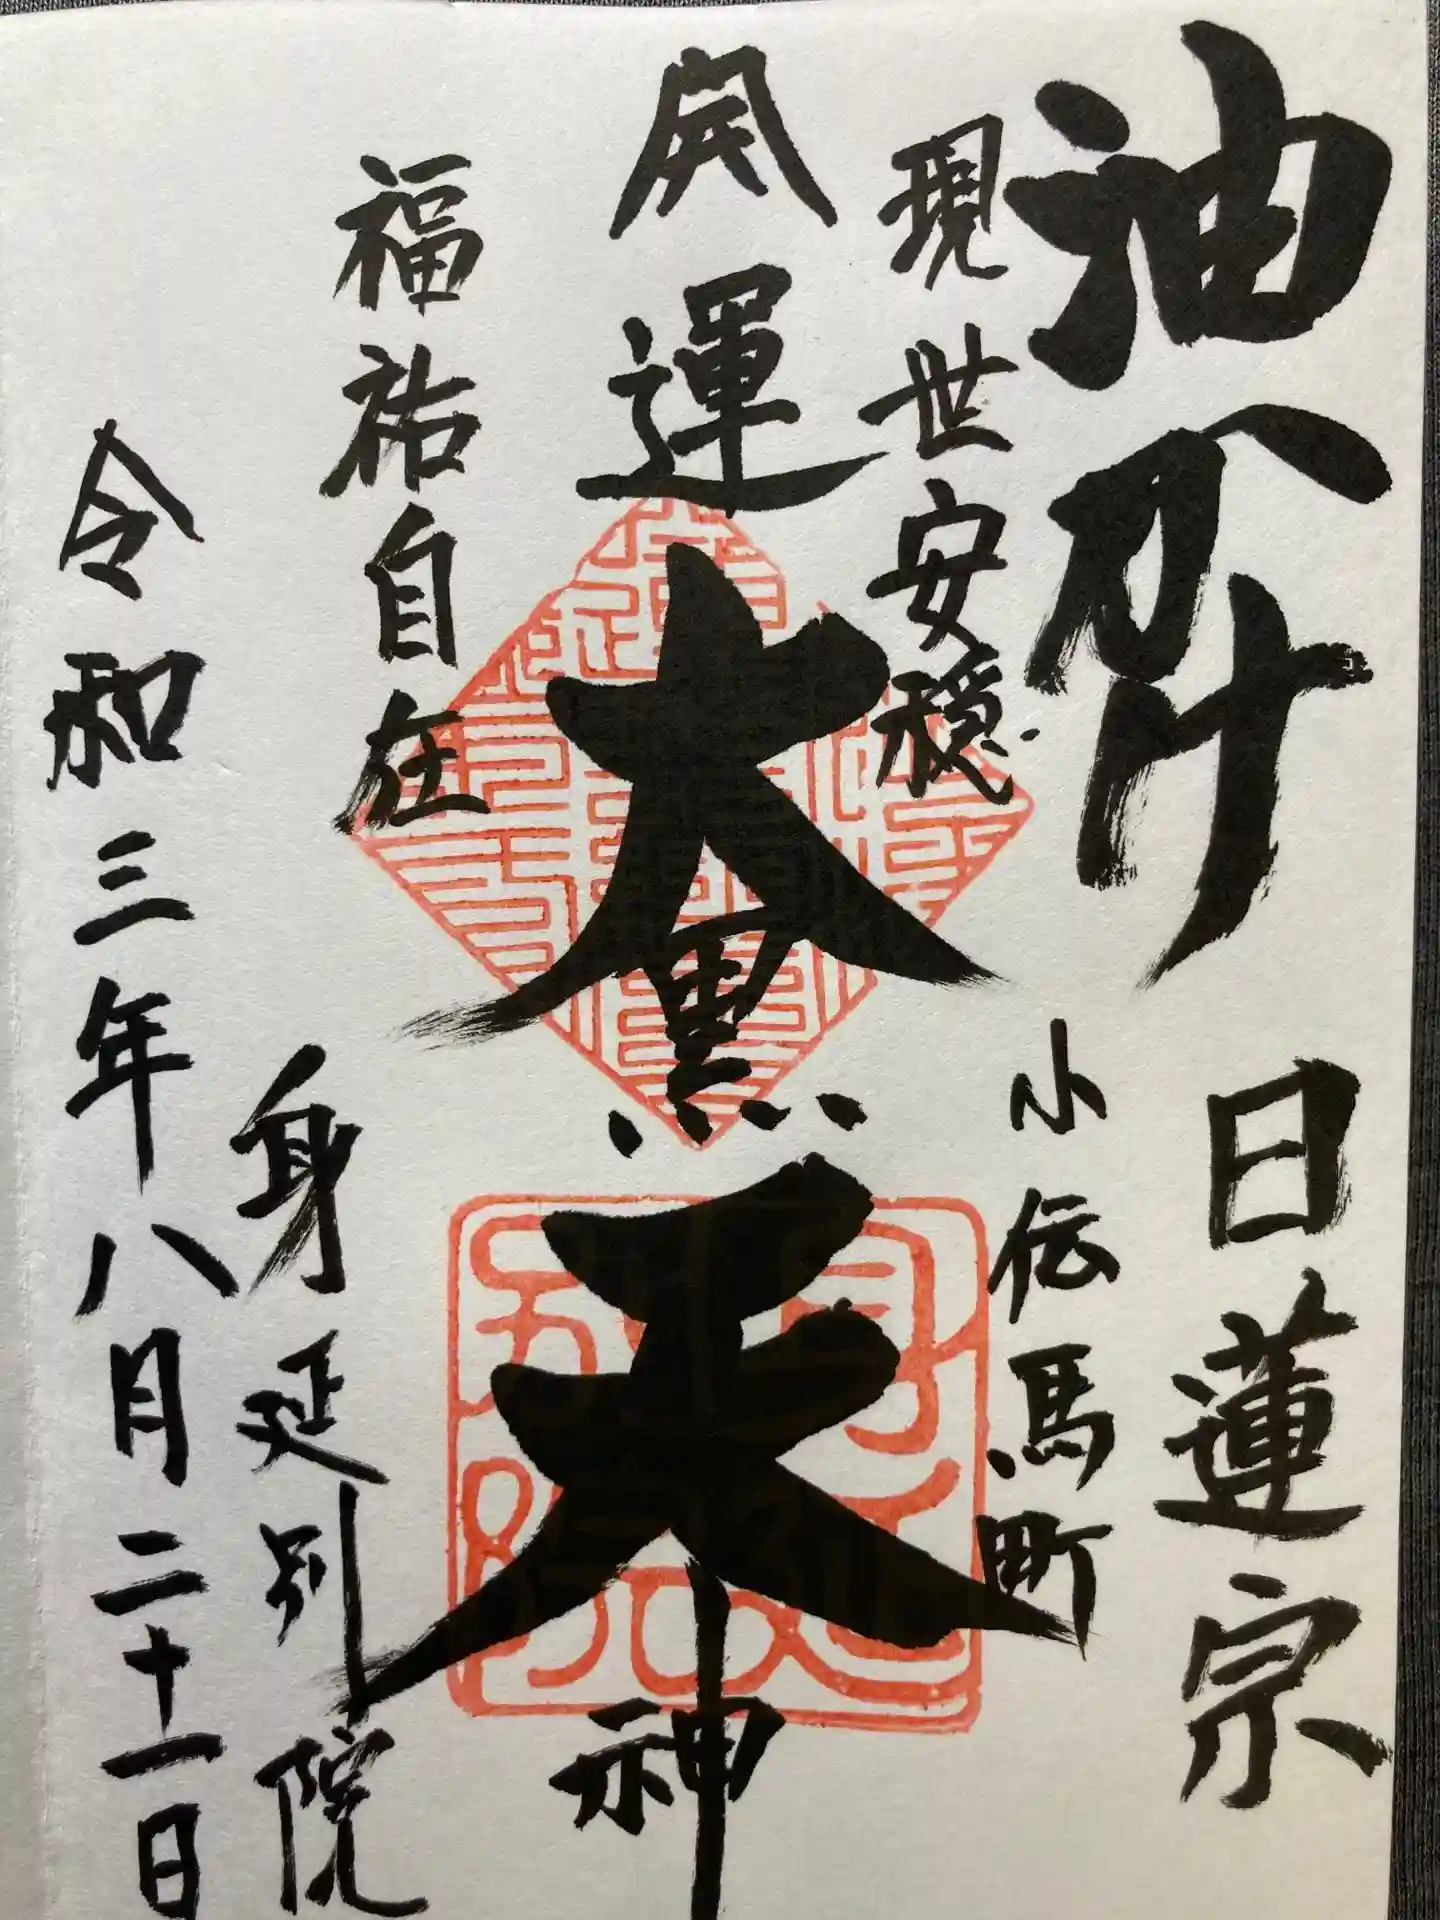 油かけ
日蓮宗
現世安穏
小伝馬町
開運大黒天神
福祐自在
身延別院
令和三年八月二十一日